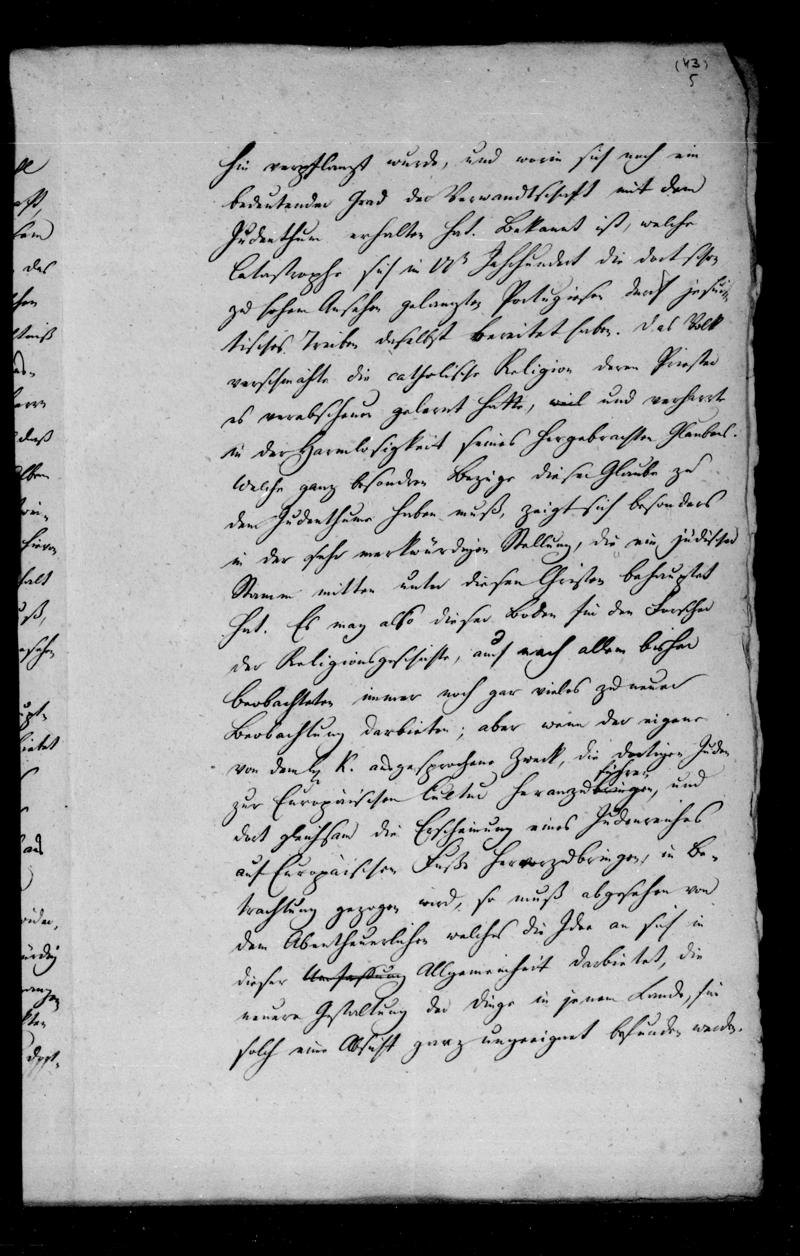 (43)
5
hin verpflanzt wurde, und worin sich noch ein
bedeutender Grad der Verwandtschaft mit dem
Judenthum erhalten hat. Bekannt ist, welche
Catastrophe sich in 17n Jahrhundert die dort schon
zu hohem Ansehen gelangten Portugiesen durch jesui-
tisches Treiben daselbst bereitet haben. Das Volk
verschmähte die catholische Religion deren Priester
es verabscheuen gelernt hatte, weil und verharrte
in der Harmlosigkeit seines hergebrachten Glaubens.
Welche ganz besondren Bezüge dieser Glaube zu
dem Judenthume haben muß, zeigt sich besonders
in der sehr merkwürdigen Stellung, die ein jüdischer
Stamm mitten unter diesen Christen behauptet
hat. Es mag also dieser Boden für den Forscher
der Religionsgeschichte, auch nach allem bisher
beobachteten immer noch gar vieles zu neuer
Beobachtung darbieten; aber wenn der eigene
von dem K. ausgesprochene Zweck, die dortigen Juden
zur Europäischen Cultur heranzubringen, und
führen
dort gleichsam die Erscheinung eines Judenreiches
auf Europäischem Fuße hervorzubringen, in Be-
trachtung gezogen wird, so muß abgesehen von
dem Abentheuerlichen welches die Idee an sich in
dieser Umfassung Allgemeinheit darbietet, die
neuere Gestaltung der Dinge in jenem Lande, für
solch eine Absicht ganz ungeeignet befunden werden.
des